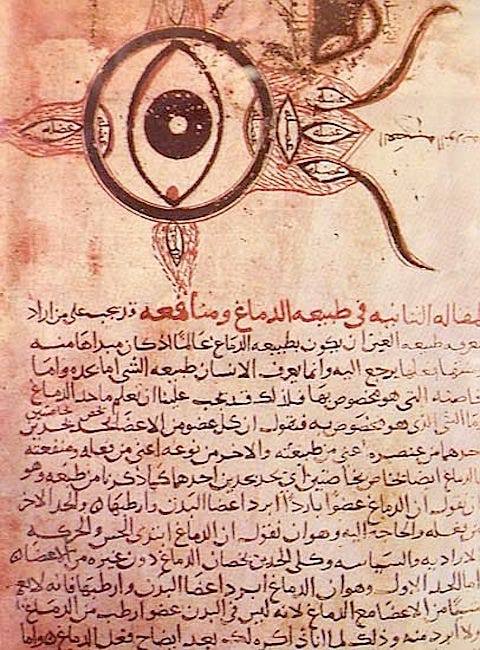 عضله
عضله
عضله
عضله
عضله
عضله
المقاله الثانيه في طبيعه الدماغ ومنافعه قد يجب على من اراد
معرفه طبيعه العين ان يكون بطبيعه الدماغ عالما اذ كان مبداها منه
يرجع اليه وانما يعرف الانسان طبيعه الشي اما بحده واما
خاصته التي هو مخصوص بها فلذلك قد يجب علينا ان نعلم ما حد الدماغ
وما الشي الذي هو مخصوص به فنقول ان كل عضو من الاعضا يحد بحدين
احدهما من عنصره اعني من طبيعته والاخر من نوعه اعني من فعله ومنفعته
والدماغ ايضا بحدين احدهما كما ذكرنا من طبعه وهو
ان نقول ان الدماغ عضوا باردا ابرد اعضا البدن وارطبها والحد الاخر
من فعله والحاجه اليه وهو ان نقول ان الدماغ ابتدى الحس والحركه
الاراديه والسياسه وكلى الحدين يخصان الدماغ دون غيره من الاعضا
اما الحد الاول وهو ان الدماغ ابرد اعضا البدن وارطبها فانه لا
شيا من الاعضا مع الدماغ لانه ليس في البدن عضو ارطب من الدماغ
ولا ابرد منه وذلك لما انا ذاكره لك بعد ايضاح فعل الدماغ هو